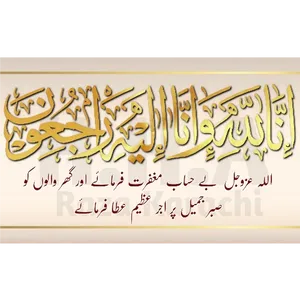 إنا لله وإنا إليه راجعون
اللہ عزوجل بے حساب مغفرت فرمائے اور گھر والوں کو
صبر جمیل پر اجر عظیم عطا فرمائے